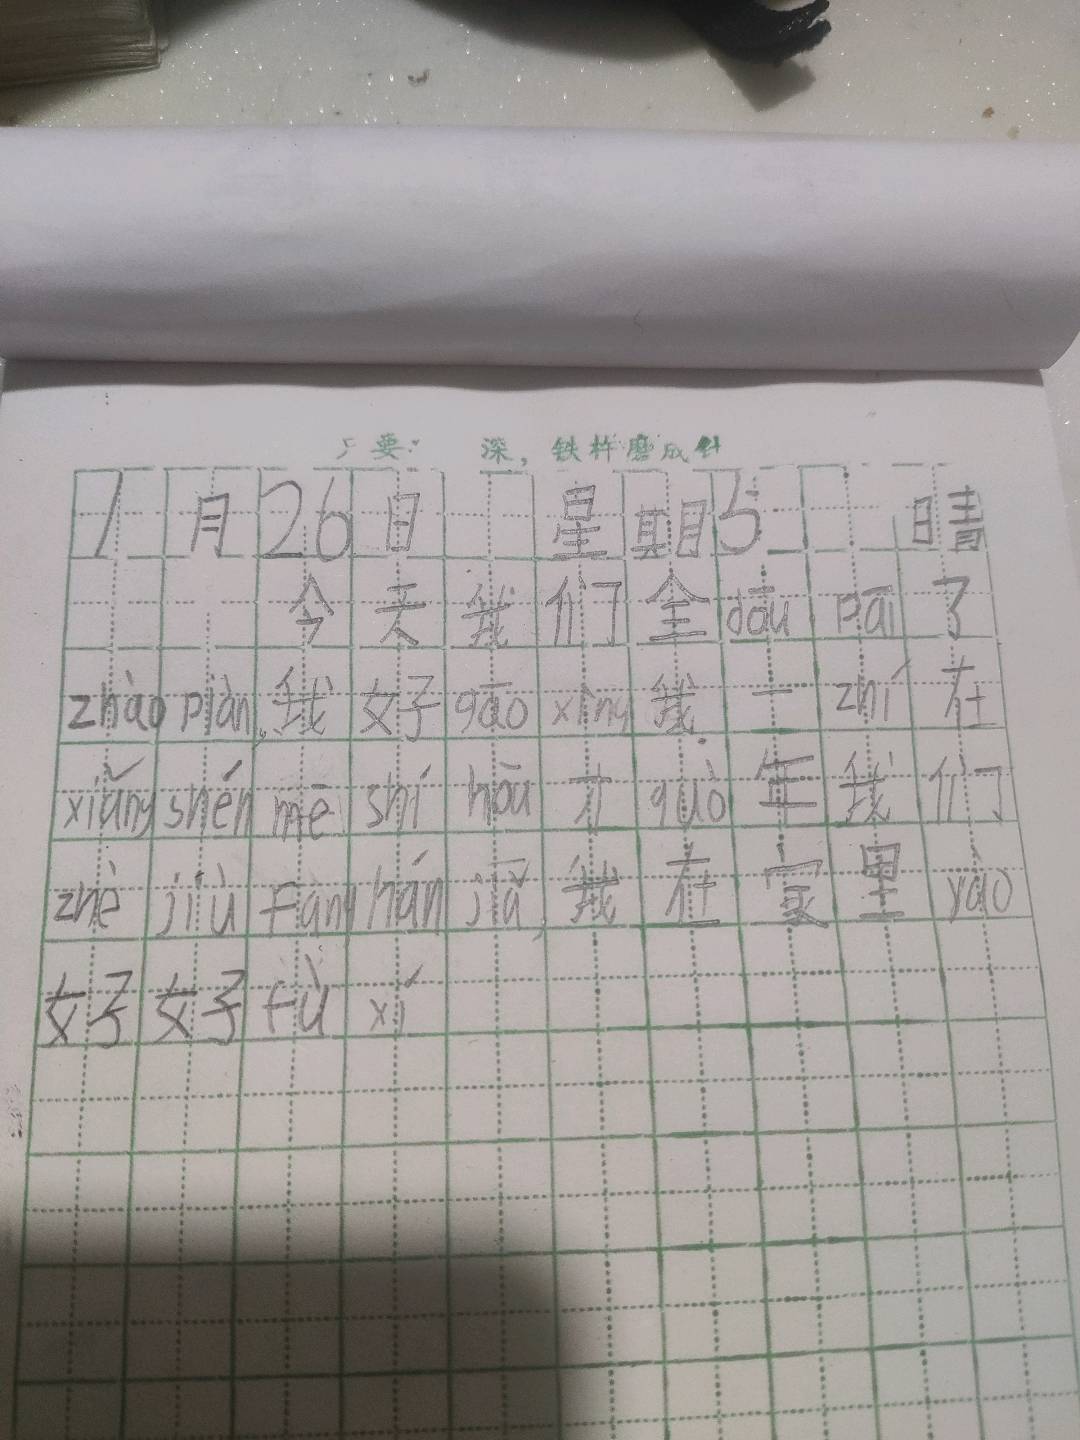 要 深，铁杵磨成针
1月26日 星期5 晴
今天我们全dōu pāi了
zhào piàn，我好gāo xìng我.一zhí在
xiǎng shén mē shí hōu才guò年我们
zhè jiù fàng hán jiǎ，我在家里yào
好好fù xí